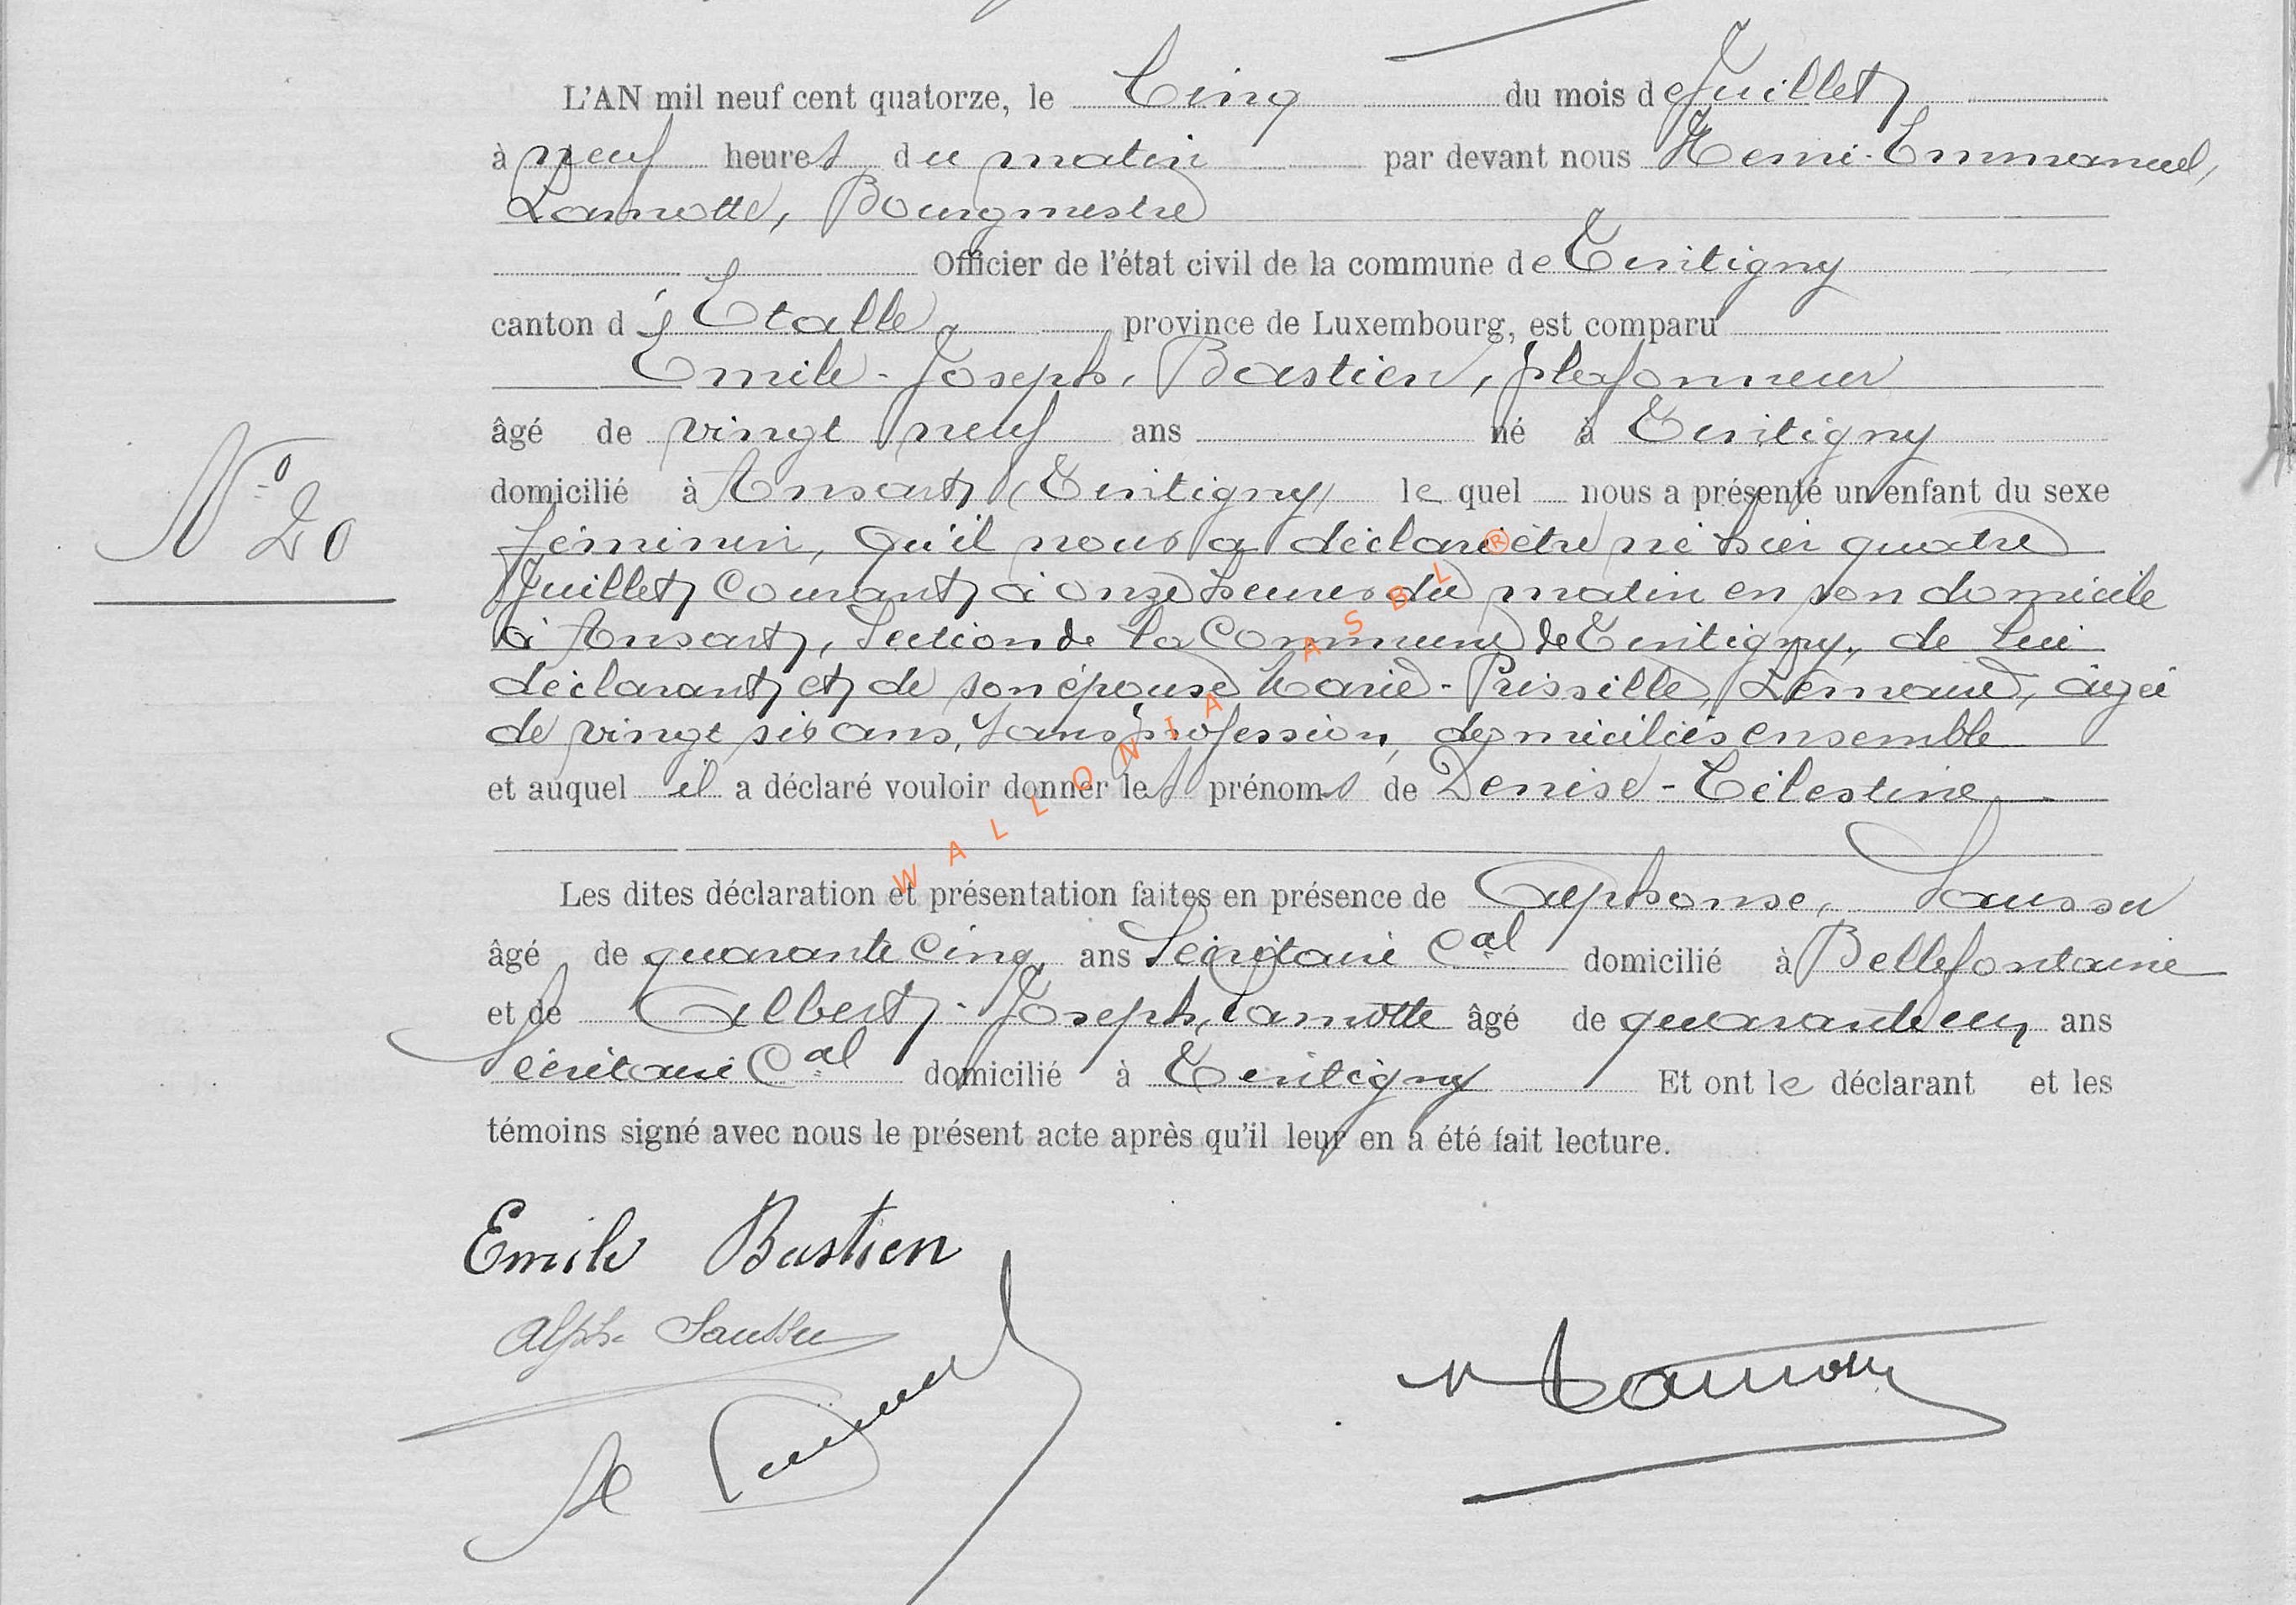 L'AN mil neuf cent quatorze, le Cinq du mois de Juillet
à neuf heures du matin par devant nous Henri-Emmanuel,
Lamotte, Bourgmestre
Officier de l'état civil de la commune de Tintigny
canton d'Etalle province de Luxembourg, est comparu
Emile-Joseph, Bastien, plafonneur
âgé de vingt neuf ans né à Tintigny
domicilié à Ansart (Tintigny) lequel nous a présenté un enfant du sexe
N° 20
féminin, qu'il nous a déclaré être né hier quatre
Juillet courant à onze heures du matin en son domicile
à Ansart, Section de la Commune de Tintigny, de lui
déclarant et de son épouse Marie-Prissille, Lemaire, âgée
de vingt six ans, sans profession, domiciliés ensemble
et auquel il a déclaré vouloir donner les prénoms de Denise-Célestine
WALLONIA ASBL ®
Les dites déclaration et présentation faites en présence de Alphonse, Saussu
âgé de quarante cinq ans Secrétaire Cal domicilié à Bellefontaine
et de Albert-Joseph, Lamotte âgé de quarante un ans
Secrétaire Cal domicilié à Tintigny Et ont le déclarant et les
témoins signé avec nous le présent acte après qu'il leur en a été fait lecture.
Emile Bastien
Alph. Saussu
Lamotte